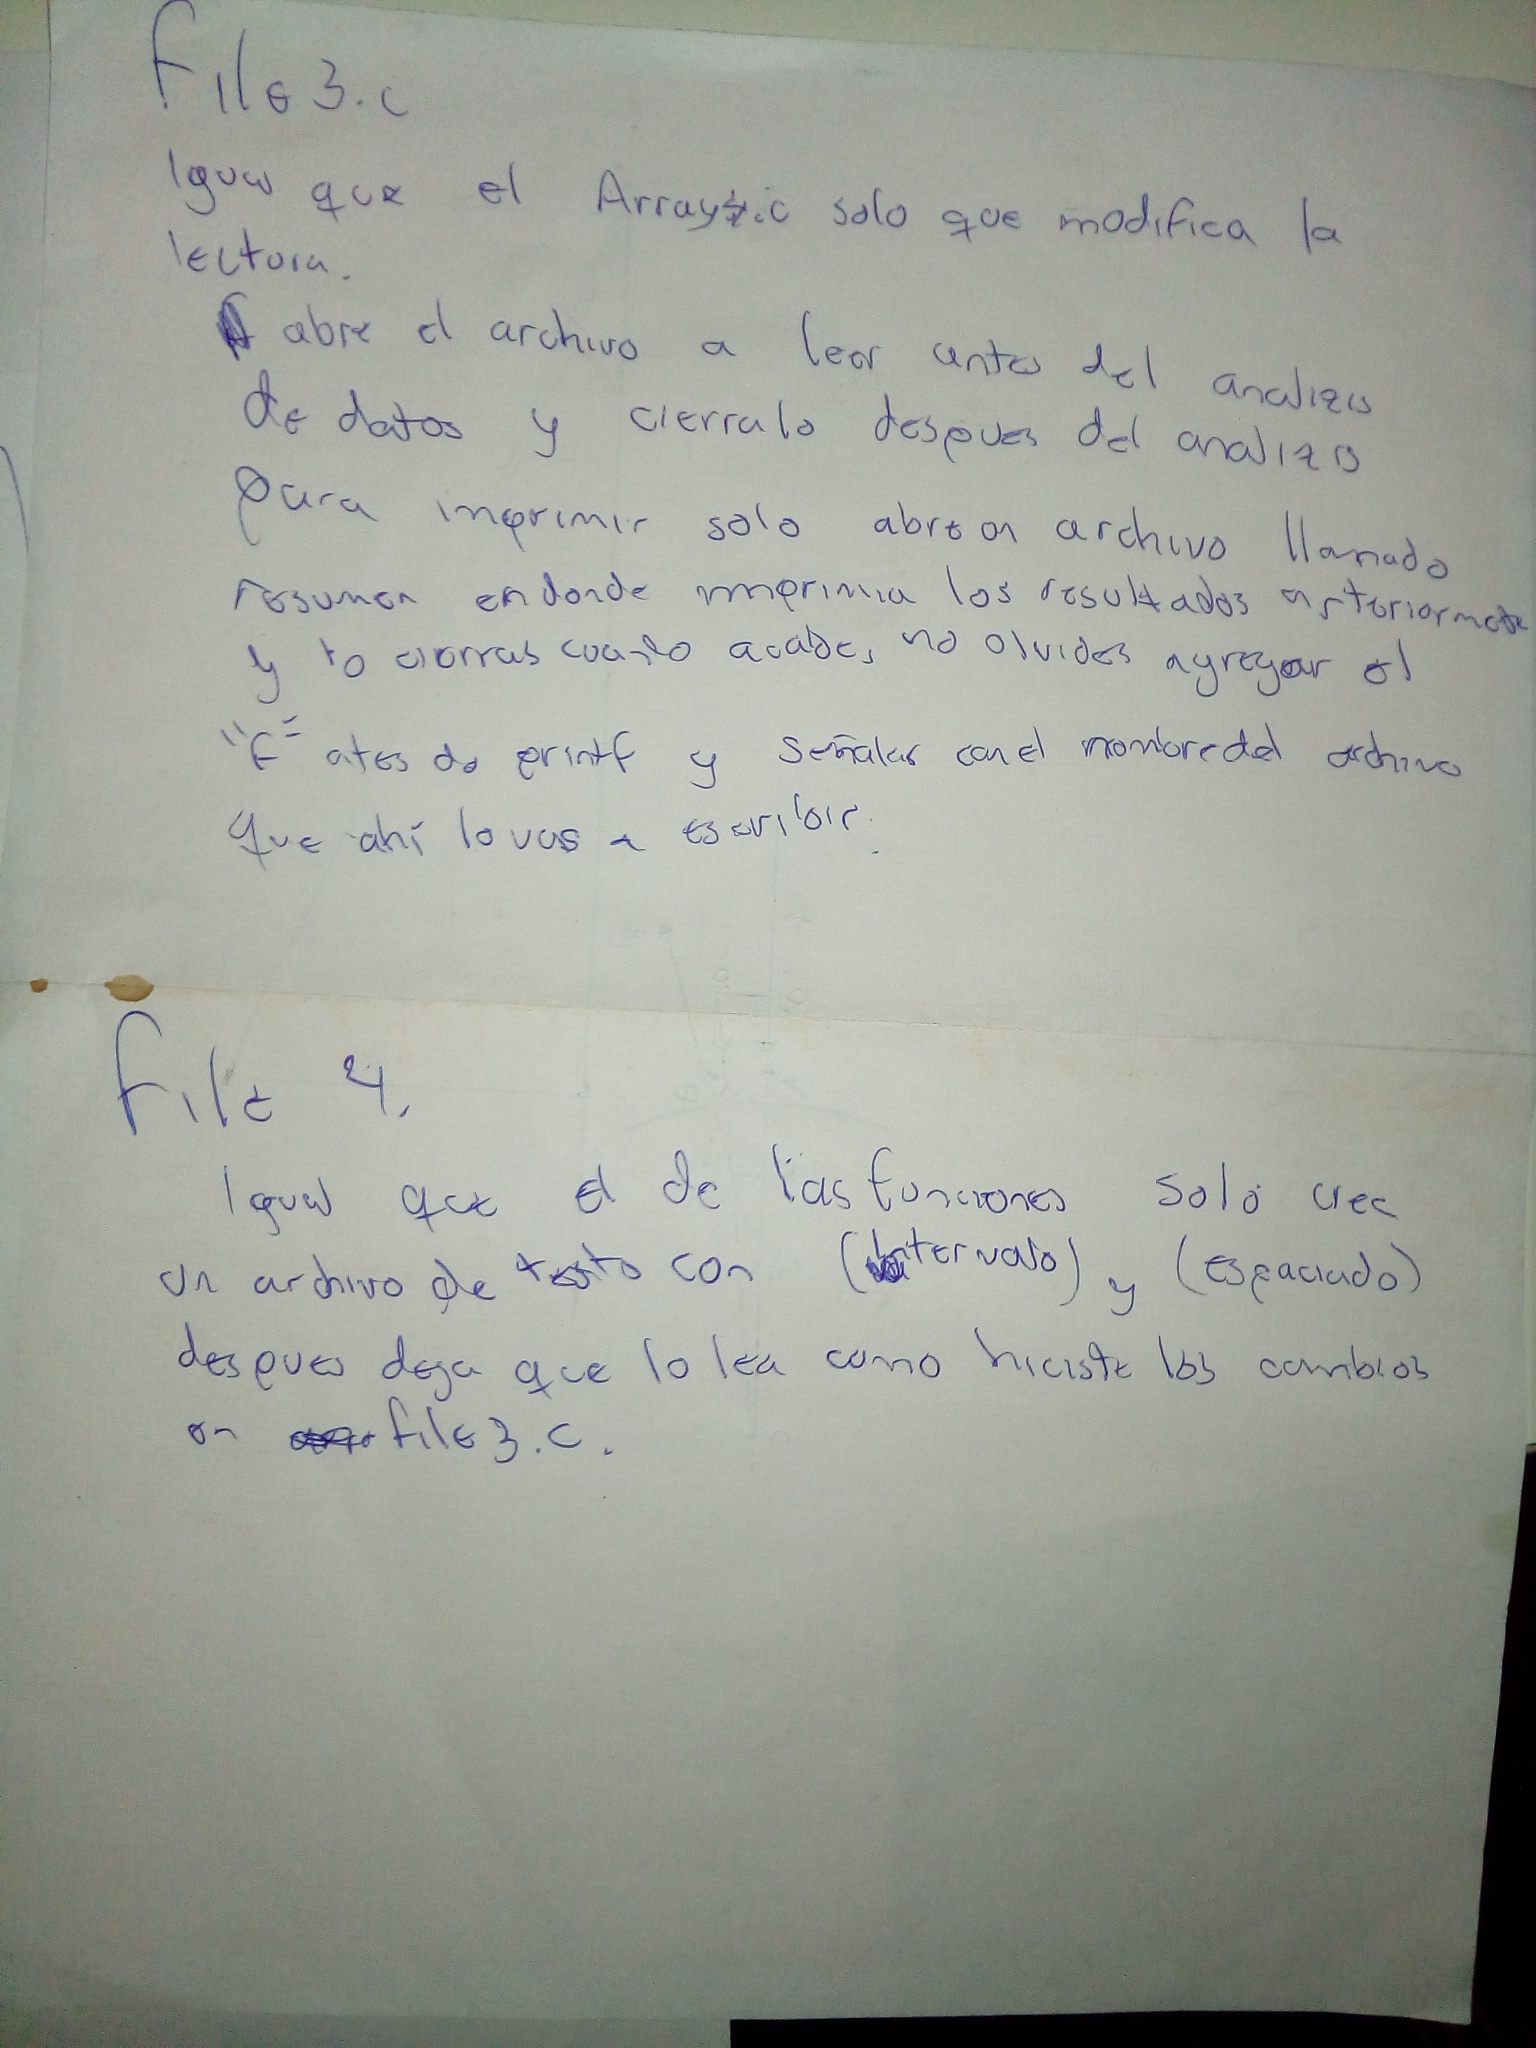 File3.c
Igual que el Array.c solo que modifica la
lectura.
abre el archivo a leer antes del analizis
de datos y cierralo despues del analizis
para imprimir solo abre un archivo llamado
resumen en donde imprimia los resultados anteriormete
y lo cierras cuando acabes, no olvides agregar el
"F" ates de printf y señalar con el nombre del archivo
que ahí lo vas a escribir.
File 4.
Igual que el de las funciones solo cree
un archivo de texto con (intervalo) y (espaciado)
despues deja que lo lea como hiciste los cambios
en file3.c.